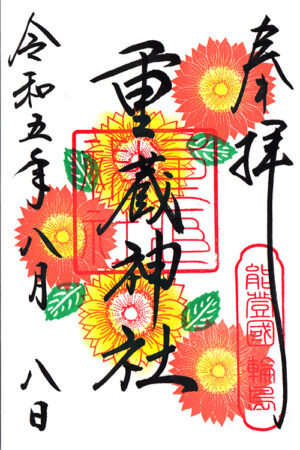 奉拝
能登國 輪島
重蔵神社
令和五年八月 八日